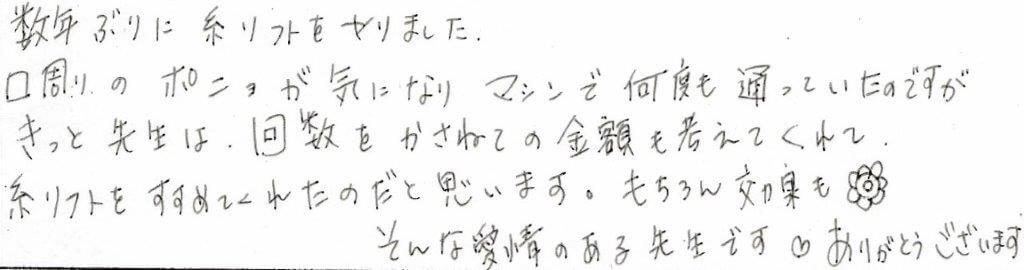 数年ぶりに 糸リフトをやりました.
口周りの ポニョが気になり マシンで何度も通っていたのですが
きっと先生は.回数をかさねての金額も考えてくれて.
糸リフトをすすめてくれたのだと思います。もちろん効果も
そんな愛情のある先生です♡ありがとうございます